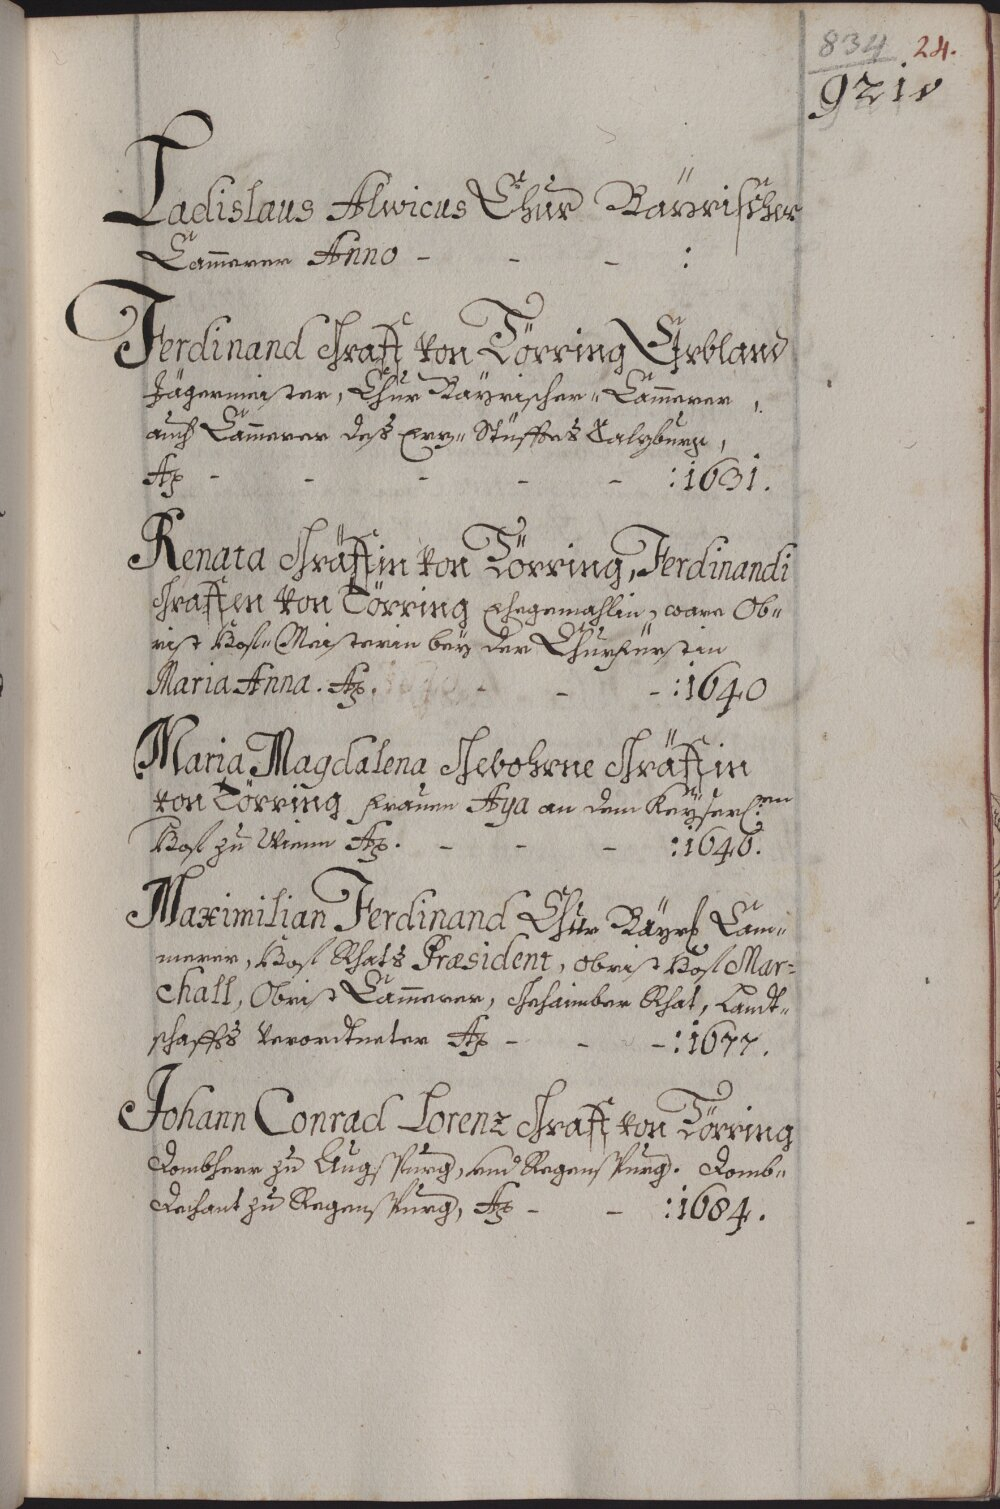 834 24.
921v
Ladislaus Alwicus Chur Bayrischer
Cam̄erer Anno - - - :
Ferdinand Graff von Törring Erbland
Jägermeister, Chur Bayrischer Cam̄erer,
auch Cam̄erer deß Erz= Stüffts Salzburg,
Aō - - - - - :1631.
Renata Gräffin von Törring, Ferdinandi
Graffen von Törring Ehegemahlin, ware Ob=
rist Hof= Meisterin bey der Churfürstin
Maria Anna. Aō. - - - :1640
Maria Magdalena Gebohrne Gräffin
von Törring Frauen Aya an dem Keyserl:en
Hof zu Wienn Aō. - - - :1646.
Maximilian Ferdinand Chur Bayrl Cam=
merer, Hof Rhats Præsident, Obrist Hof Mar=
chall, Obrist Cam̄erer, Gehaimber Rhat, Landt=
schaffts Verordtneter Aō - - - :1677.
Johann Conrad Lorenz Graff von Törring
Dombherr zu Augspurg, und Regenspurg. Domb=
Dechant zu Regenspurg, Aō - - :1684.